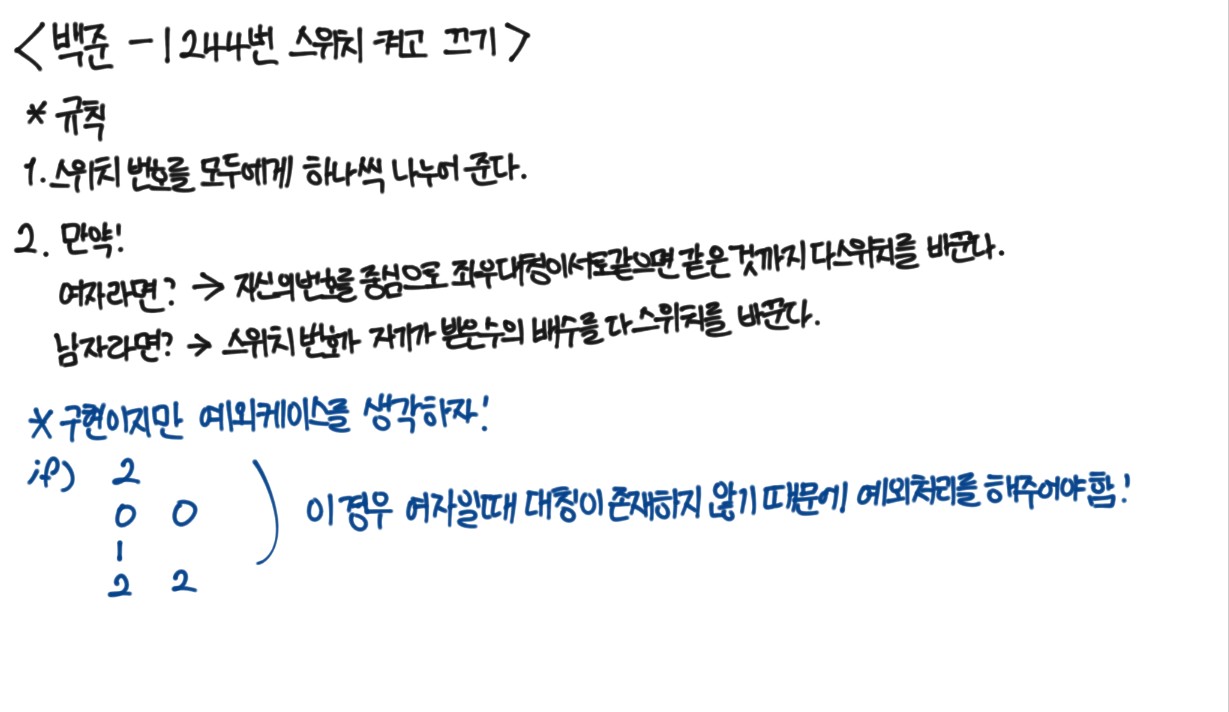 <백준 - 1244번 스위치 켜고 끄기>
* 규칙
1. 스위치 번호를 모두에게 하나씩 나누어 준다.
2. 만약!
여자라면? → 자신의 번호를 중심으로 좌우대칭이 서로 같으면 같은 것까지 다 스위치를 바꾼다.
남자라면? → 스위치 번호가 자기가 받은 수의 배수를 다 스위치를 바꾼다.
* 구현이지만 예외케이스를 생각하자!
if) 2
0 0
1
2 2
이 경우 여자일때 대칭이 존재하지 않기 때문에 예외처리를 해주어야 함!